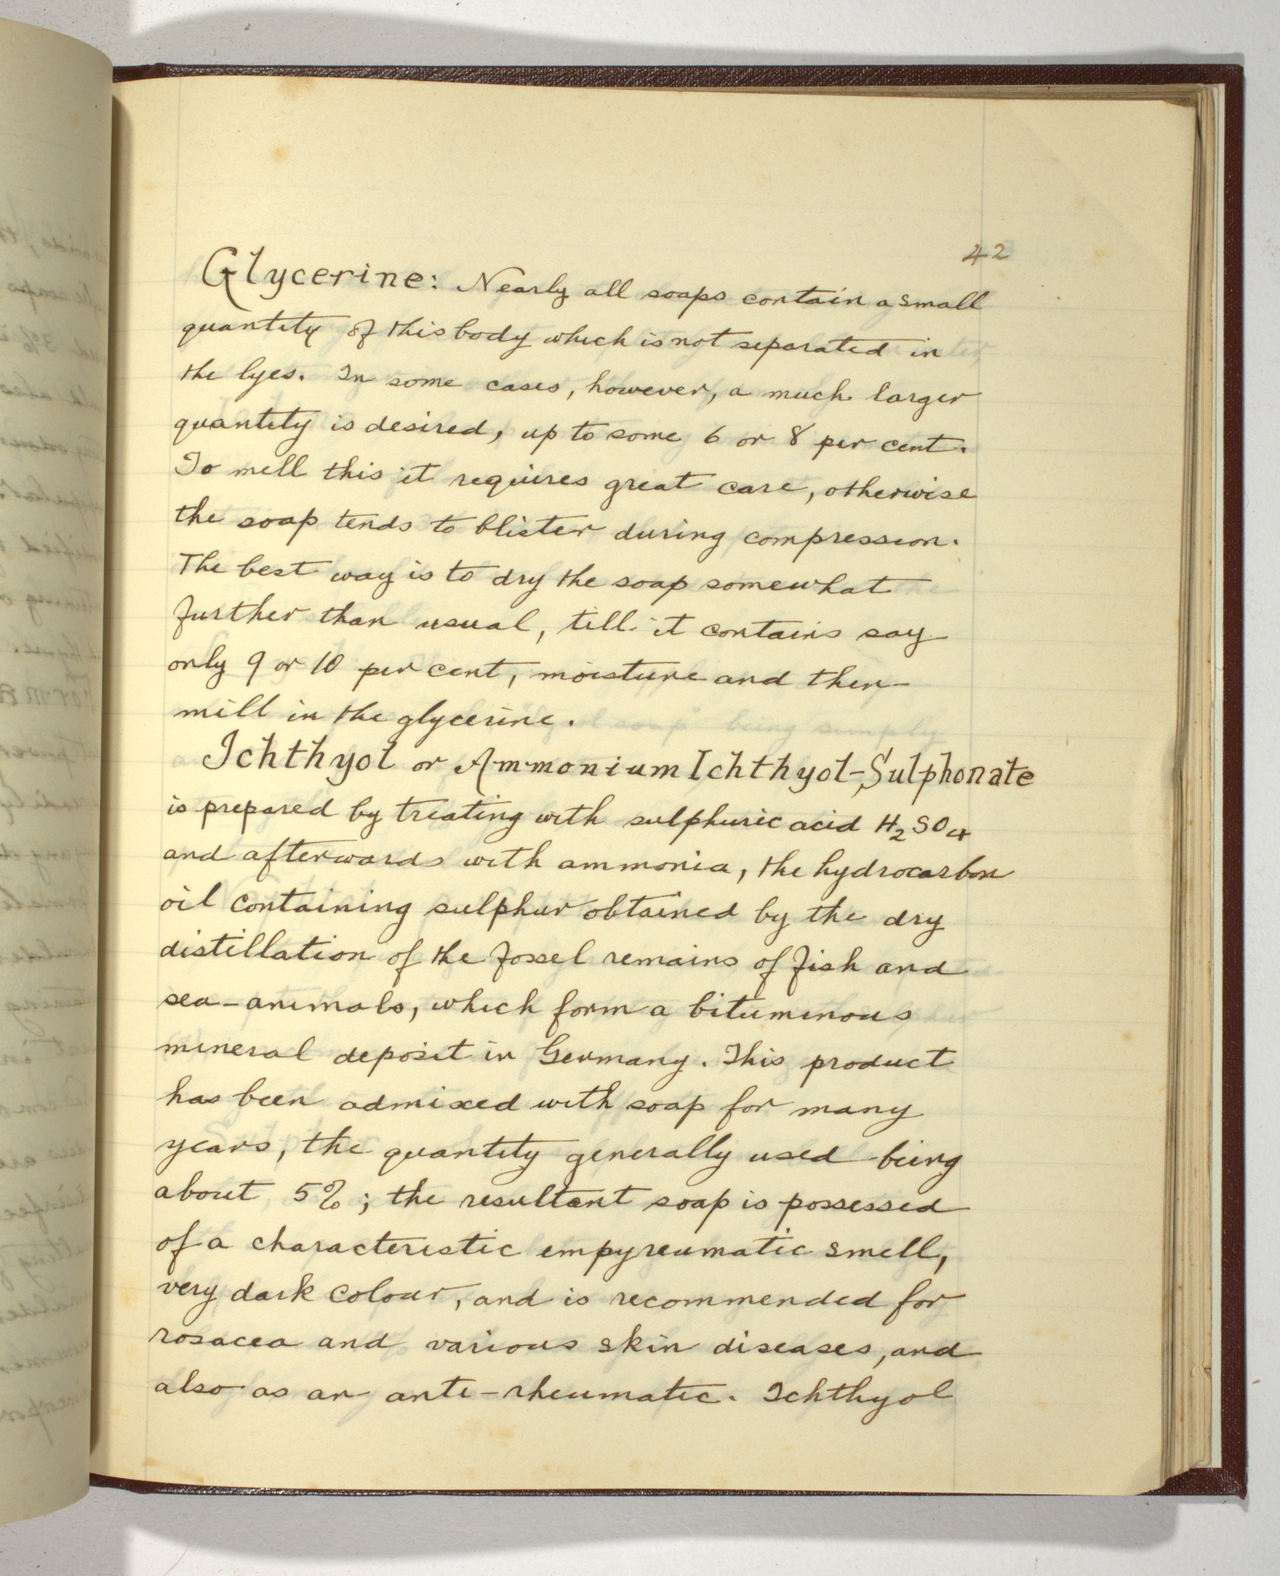 42
Glycerine: Nearly all soaps contain a small
quantity of this body which is not separated in
the lyes. In some cases, however, a much larger
quantity is desired, up to some 6 or 8 per cent.
To mell this it requires great care, otherwise
the soap tends to blister during compression.
The best way is to dry the soap somewhat
further than usual, till it contains say
only 9 or 10 per cent, moisture and then
mill in the glycerine.
Ichthyol or Ammonium Ichthyol-Sulphonate
is prepared by treating with sulphuric acid H2SO4
and afterwards with ammonia, the hydrocarbon
oil containing sulphur obtained by the dry
distillation of the fossel remains of fish and
sea-animals, which form a bituminous
mineral deposit in Germany. This product
has been admixed with soap for many
years, the quantity generally used being
about 5%; the resultant soap is possessed
of a characteristic empyreumatic smell,
very dark colour, and is recommended for
rosacea and various skin diseases, and
also as an anti-rheumatic. Ichthyol